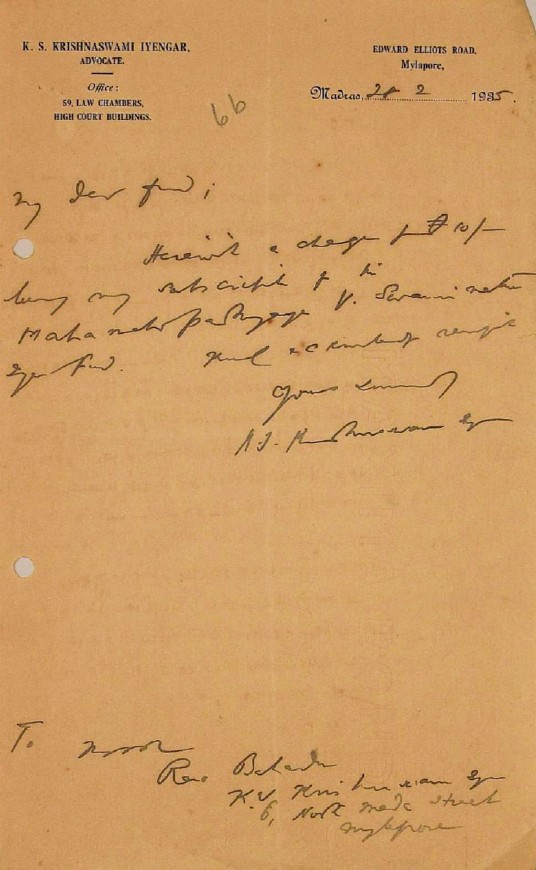 K. S. KRISHNASWAMI IYENGAR,
ADVOCATE.
Office:
59, LAW CHAMBERS,
HIGH COURT BUILDINGS.
EDWARD ELLIOTS ROAD,
Mylapore,
Madras, 2 1935.
66
My dear friend,
Herewith a cheque for 10/-
being my subscription of the
Mahamahopadhyaya V. Swaminatha
Iyer fund. Kind acknowledge receipt
Yours sincerely
K. S. Krishnaswami Iyengar
To
Rao Bahadur
K. V. Krishnaswami Iyer
6, North Mada Street
Mylapore